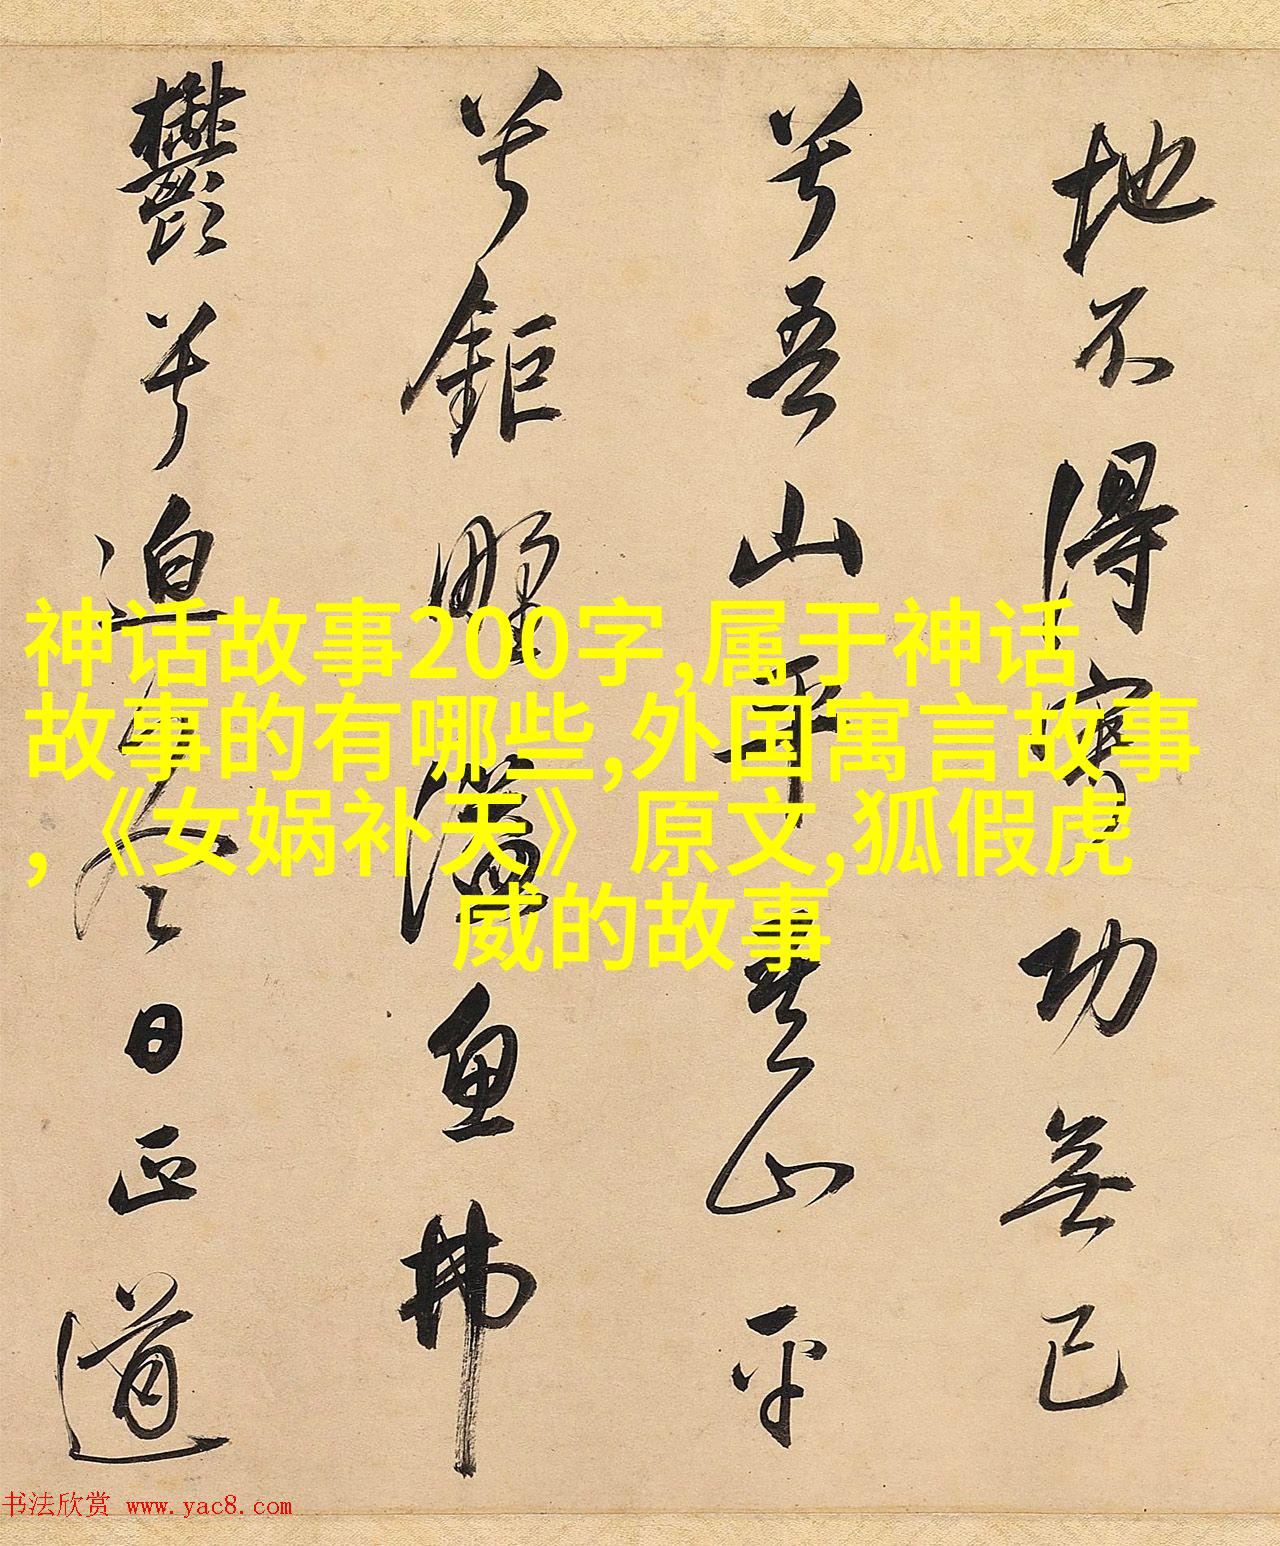 地不得寧功無已
兮吾山平吾山平
兮鉅野溢魚弗
鬱兮迫冬日正道
神话故事200字,属于神话
故事的有哪些,外国寓言故事
,《女娲补天》原文,狐假虎
威的故事
书法欣赏 www.yac8.com